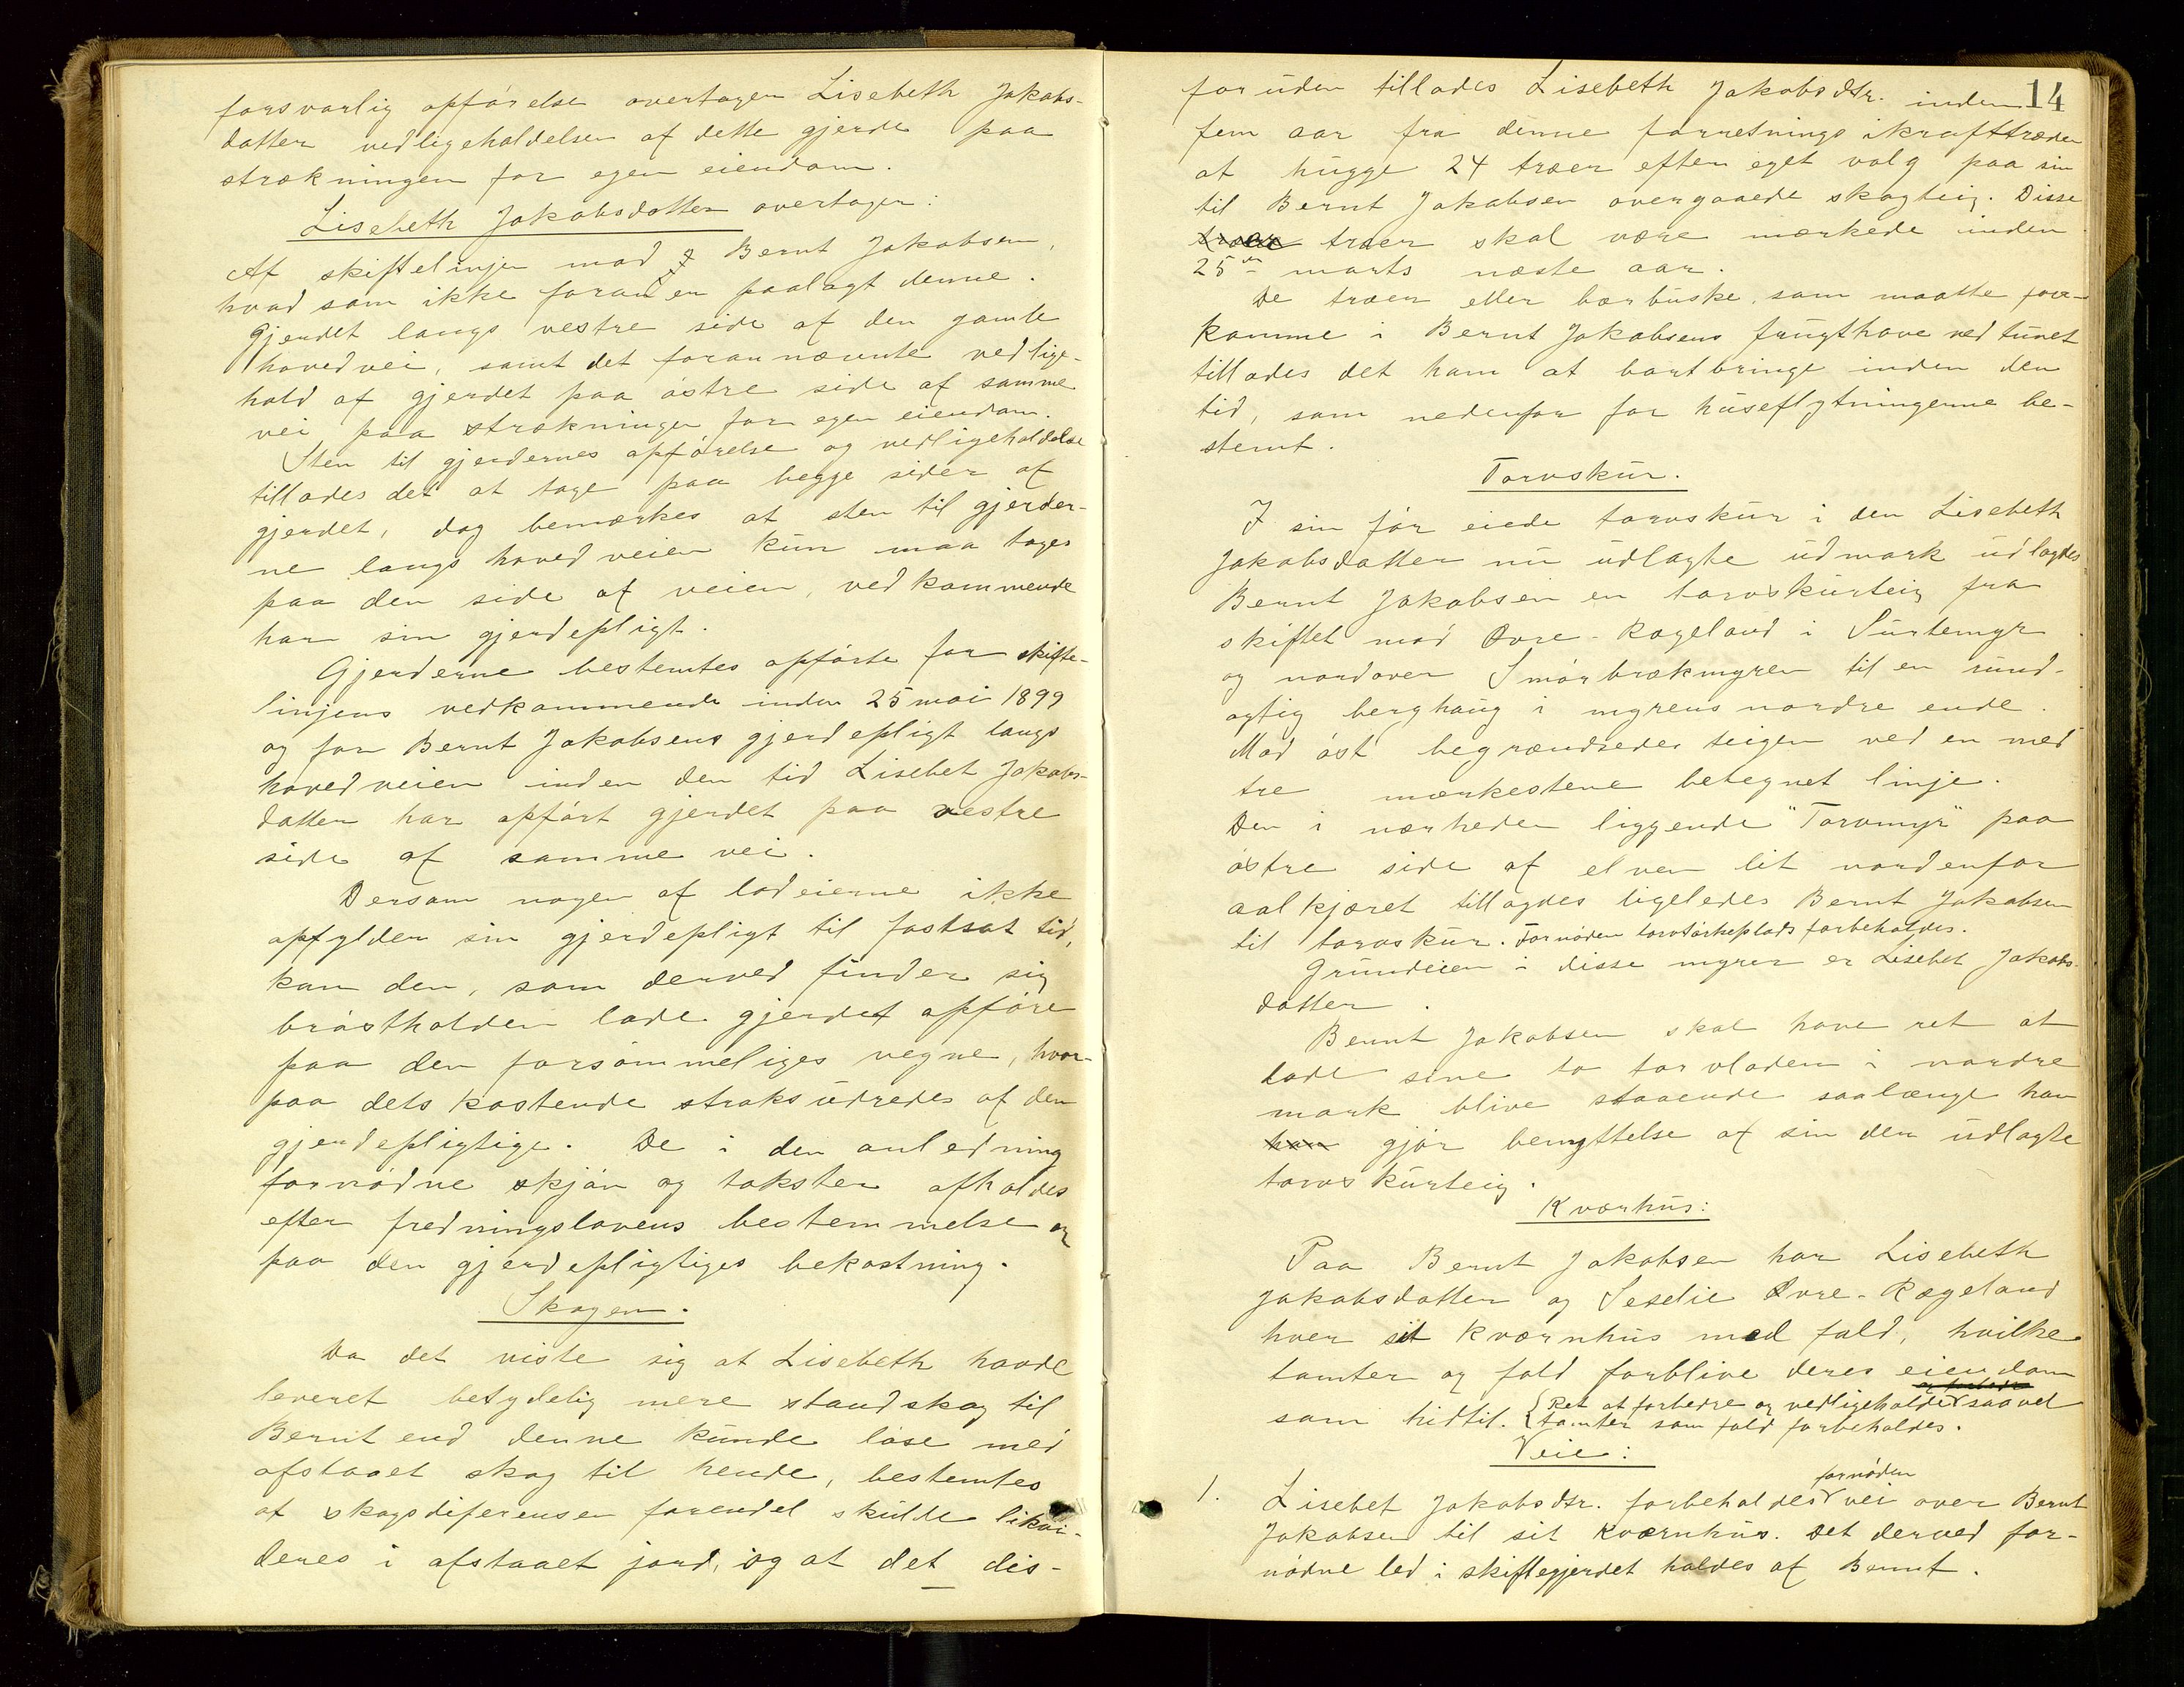 forsvarlig opførelse overtager Lisebeth Jakobs-
datter vedligeholdelsen af dette gjerde paa
strækningen for egen eiendom.
Lisebeth Jakobsdatter overtager:
Af skiftelinjen mod Bernt Jakobsen,
hvad som ikke foran er paalagt denne.
Gjerdet langs vestre side af den gamle
hovedvei, samt det forannævnte vedlige-
hold af gjerdet paa østre side af samme
vei paa strækningen for egen eiendom.
Sten til gjerdernes opførelse og vedligeholdelse
tillades det at tage paa begge sider af
gjerdet, dog bemærkes at sten til gjerder-
ne langs hovedveien kun maa tages
paa den side af veien, vedkommende
har sin gjerdepligt.
Gjerderne bestemtes opførte for skifte-
linjens vedkommende inden 25 mai 1899
og for Bernt Jakobsens gjerdepligt langs
hovedveien inden den tid Lisebet Jakobs-
datter har opført gjerdet paa vestre
side af samme vei.
Dersom nogen af lodeierne ikke
opfylder sin gjerdepligt til fastsat tid,
kan den, som derved finder sig
brøstholden lade gjerdet opføre
paa den forsømmeliges vegne, hvor-
paa dets kostende straks udredes af den
gjerdepligtige. De i den anledning
fornødne skjøn og takster afholdes
efter fredningslovens bestemmelse og
paa den gjerdepligtiges bekostning.
Skogen.
Da det viste sig at Lisebeth havde
leveret betydelig mere standskog til
Bernt end denne kunde løse med
afstaaet skog til hende, bestemtes
at skogsdiferensen forendel skulde likvi-
deres i afstaaet jord, og at det des-
14
foruden tillades Lisebeth Jakobsdtr. inden
fem aar fra denne forretnings ikrafttræden
at hugge 24 træer efter eget valg paa sin
til Bernt Jakobsen overgaaede skogteig. Disse
træer træer skal være mærkede inden
25de marts næste aar.
De træer eller bærbuske, som maatte fore-
komme i Bernt Jakobsens frugthave ved tunet
tillades det ham at bortbringe inden den
tid, som nedenfor for huseflytningerne be-
stemt.
Torvskur.
I sin før eiede torvskur i den Lisebeth
Jakobsdatter nu udlagte udmark udlagdes
Bernt Jakobsen en torvskurteig fra
skiftet mod Øvre-Rægeland i Surtemyr
og nordover Smørbrækmyren til en rund-
agtig berghaug i myrens nordre ende.
Mod øst begrændsedes teigen ved en med
tre mærkestene betegnet linje.
Den i nærheden liggende "Torvmyr" paa
østre side af elven lit nordenfor
aalkjæret tillagdes ligeledes Bernt Jakobsen
til torvskur. Fornøden torvtørkeplads forbeholdes.
Grundeier i disse myrer er Lisebet Jakobs-
datter.
Bernt Jakobsen skal have ret at
lade sine to torvladen i nordre
mark blive staaende saalænge han
han gjør benyttelse af sin der udlagte
torvskurteig.
Kværhus:
Paa Bernt Jakobsen har Lisebeth
Jakobsdatter og Seselie Øvre-Rægeland
hver sit kværnhus med fald, hvilke
tomter og fald forblive deres eiendom
som hidtil. Ret at forbedre og vedligeholde saavel
tomter som fald forbeholdes.
Veie:
1. Lisebet Jakobsdtr. forbeholdes fornøden vei over Bernt
Jakobsen til sit kværnhus. Det derved for-
nødne led i skiftegjerdet holdes af Bernt.